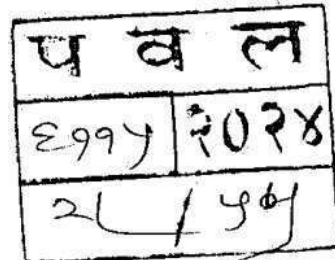 प व ल
६११५ २०२४
२ / ५७